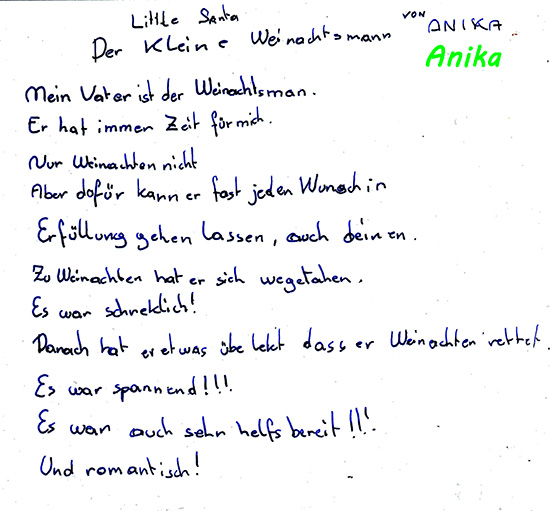 Little Santa
Der Kleine Weinachtsmann von ANIKA
Anika
Mein Vater ist der Weinachtsman.
Er hat immer Zeit für mich.
Nur Weinachten nicht
Aber dofür kann er fast jeden Wunsch in
Erfüllung gehen lassen, auch deinen.
Zu Weinachten hat er sich wegetahen.
Es war schreklich!
Danach hat er etwas übe lekt dass er Weinachten rettet.
Es war spannend!!!
Es war auch sehr helfsbereit!!!
Und romantisch!